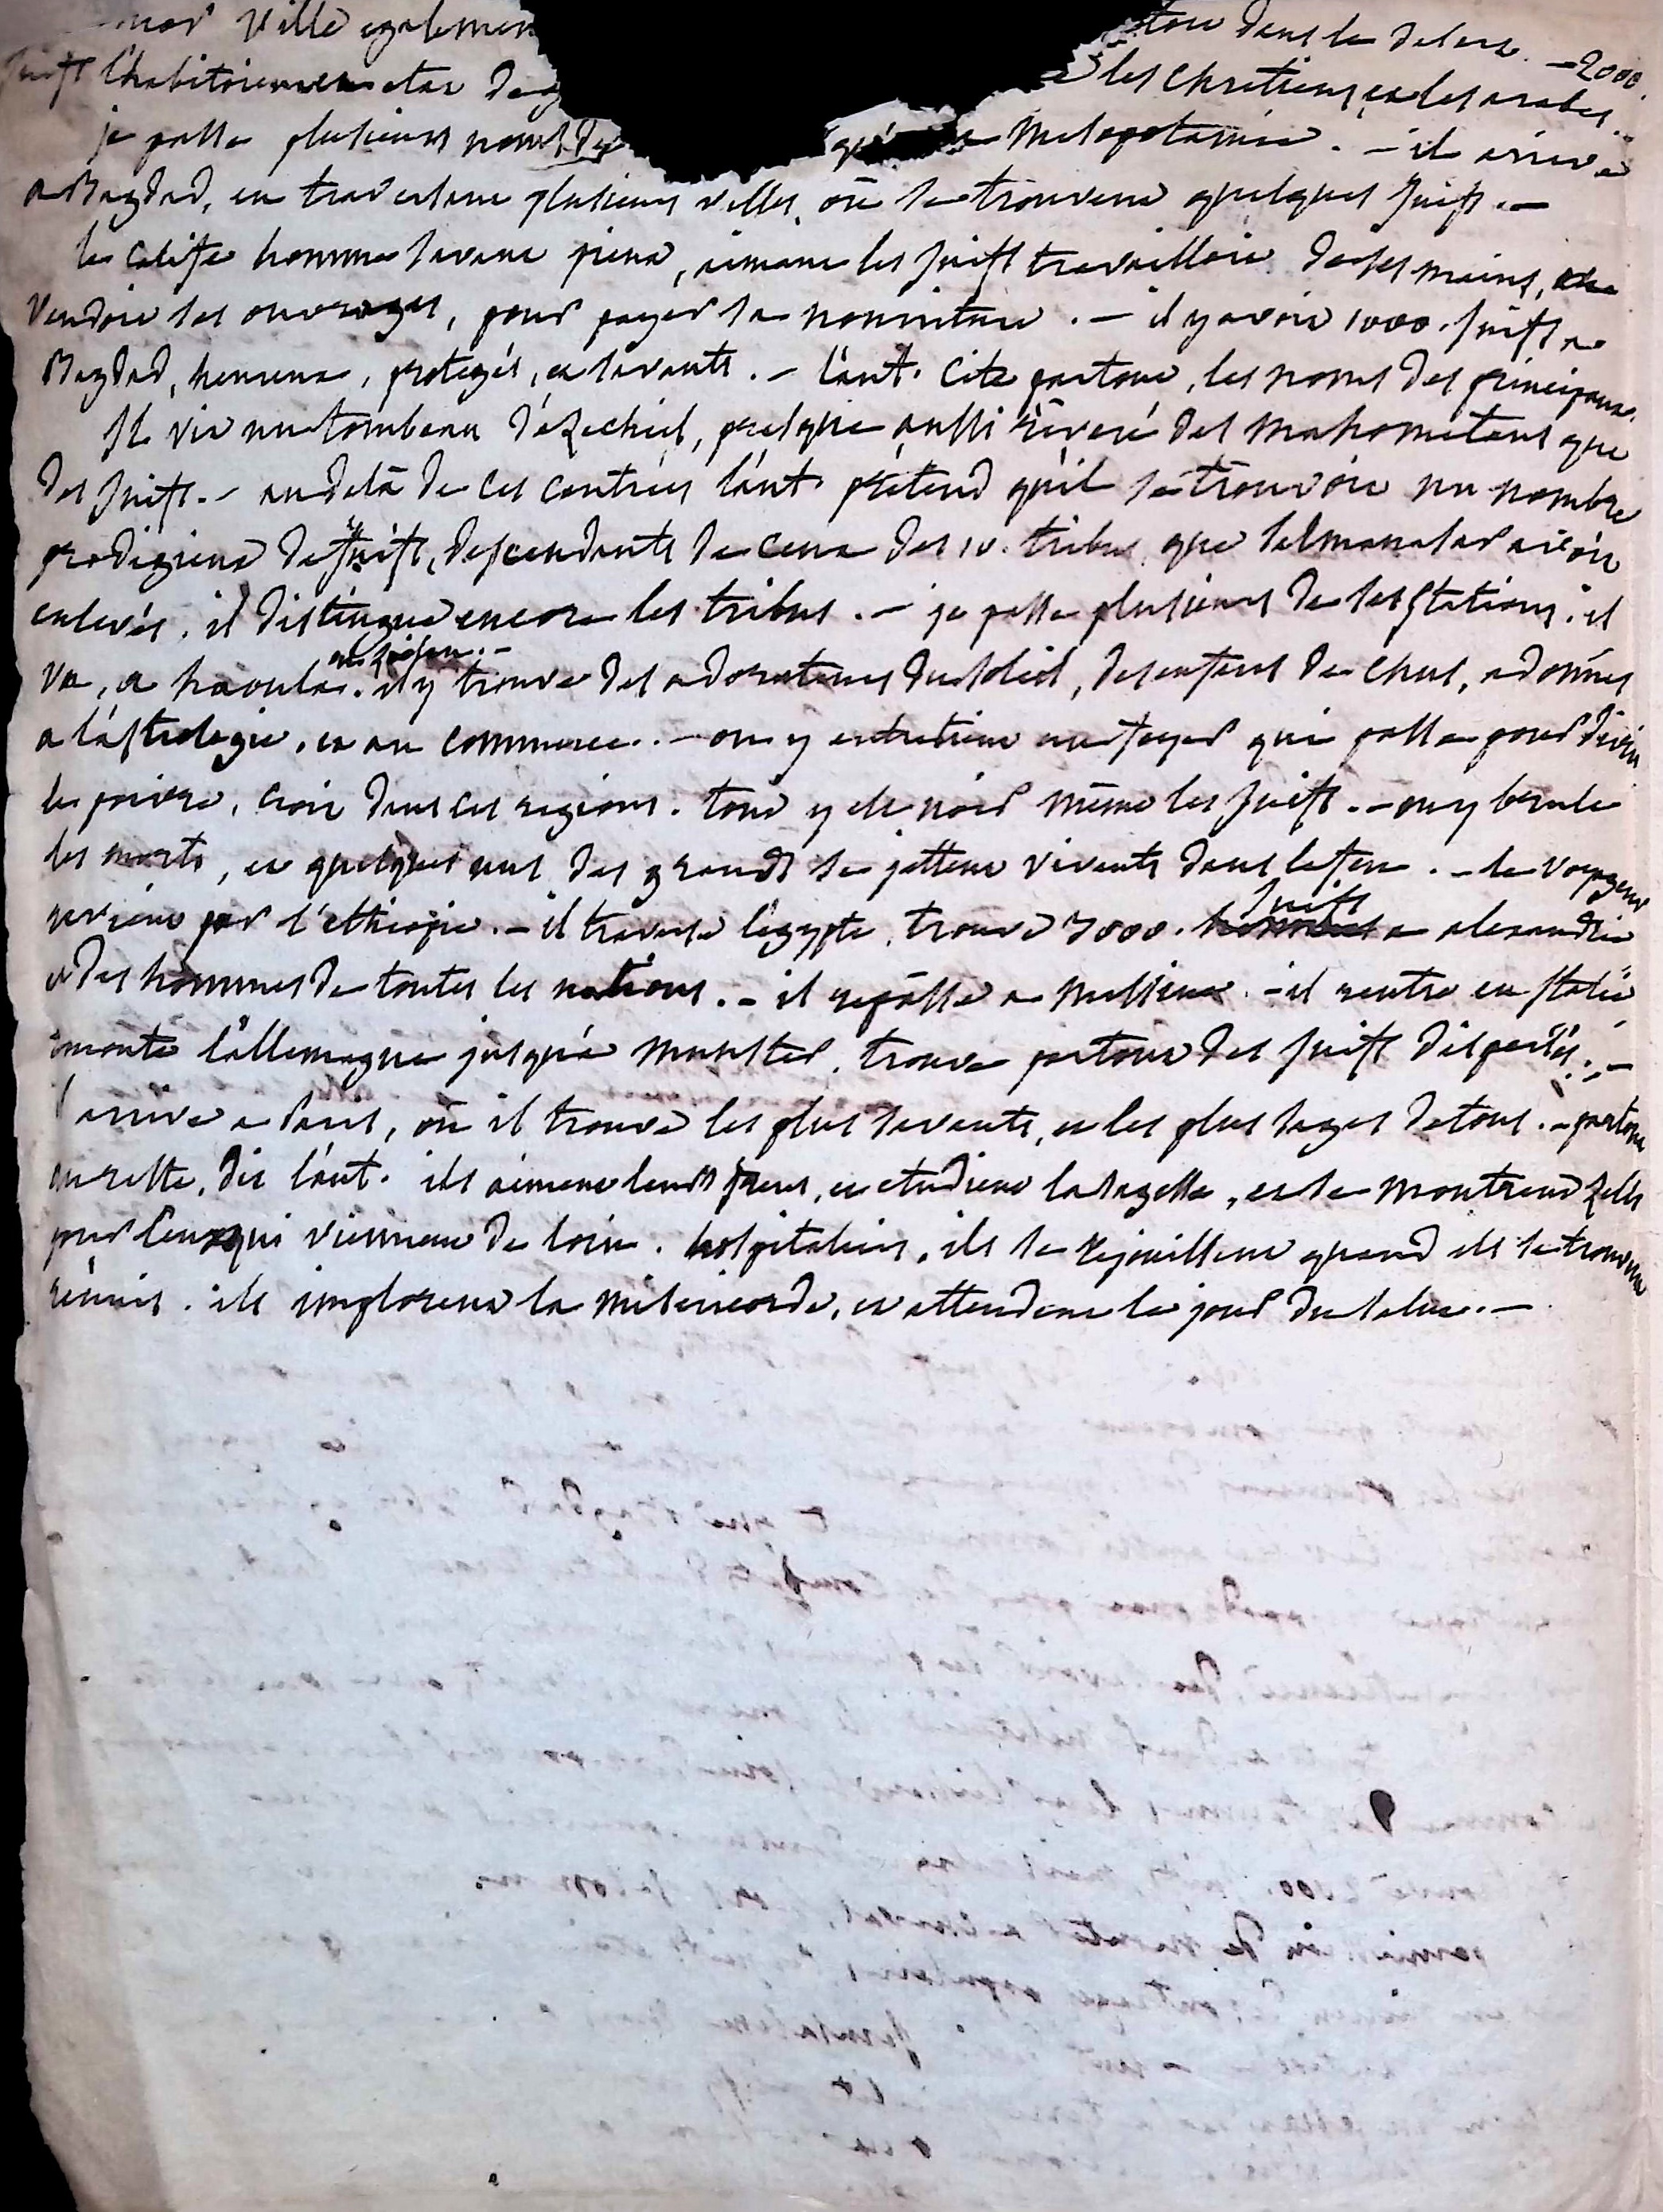 ville egalemen toit dans le desert. - 2000.
Juifs l'habitoient en etat de g les chretiens, et les arabes. -
je passe plusieurs noms, de qu'en mesopotamie. - il arrive
a Bagdad, en traversant plusieurs villes, ou se trouvent quelques Juifs. -
le calife homme savant pieux, aimant les Juifs travailloit de ses mains, et
vendoit ses ouvrages, pour payer sa nourriture. - il y avoit 1000. Juifs a
Bagdad, heureux, protegés, et savants. - l'aut. cite partout, les noms des principaux.
Il vit un tombeau d'ézechiel, presque aussi réveré des mahometans que
des Juifs. - au delà de ces contrées l'aut. prétend qu'il se trouvoit un nombre
prodigieux de Juifs, descendants de ceux des 10. tribus que salmanasar avoit
enlevés. il distingue encore les tribus. - je passe plusieurs de ses stations. il
va, a haoula. il y trouve des adorateurs du soleil, des enfans de chus, adonnés
a l'astrologie, et au commerce. - on y entretient un foyer qui passe pour divin
le poivre, croit dans ces regions. tout y est noir même les Juifs. - on y brule
les morts, et quelques uns des grands se jettent vivants dans le feu. - le voyageur
revient par l'ethiopie. - il traverse l'egypte, trouve 3000. Juifs a alexandrie
et des hommes de toutes les nations. - il repasse a Messine. - il rentre en Italie,
remonte l'allemagne jusqu'a Munster, trouve partout des Juifs dispersés. -
il arrive a Paris, ou il trouve les plus savants, et les plus sages de tous. - partout
au reste, dit l'aut. ils aiment leurs freres, et etudient la sagesse, et se montrent zelés
pour ceux qui viennent de loin. hospitaliers, ils se rejouissent quand ils se trouvent
réunis. ils implorent la misericorde, et attendent le jour du salut. -